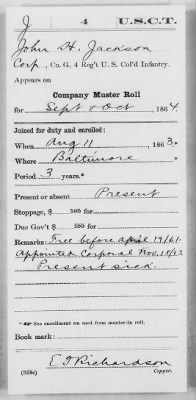 J 4 U.S.C.T.
John H. Jackson
Corp., Co. G, 4 Reg't U. S. Col'd Infantry.
Appears on
Company Muster Roll
for Sept & Oct, 1864.
Joined for duty and enrolled:
When Aug 11, 1863.*
Where Baltimore *
Period 3 years.*
Present or absent Present
Stoppage, $ 100 for
Due Gov't $ 100 for
Remarks: Free before April 19/61.
Appointed Corporal Nov. 18/63
Present sick.
* See enrollment on card from muster-in roll.
Book mark:
E T Richardson
(358c) Copyist.